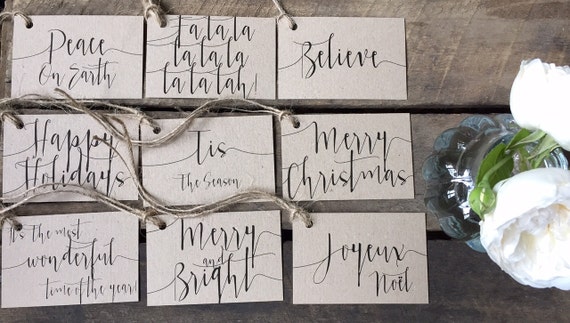 Peace
On Earth
Fa la la
la la la
la la lah!
Believe
Happy
Holidays
Tis
The Season
Merry
Christmas
It's The most
wonderful
time of the year!
Merry
and
Bright
Joyeux
Noël